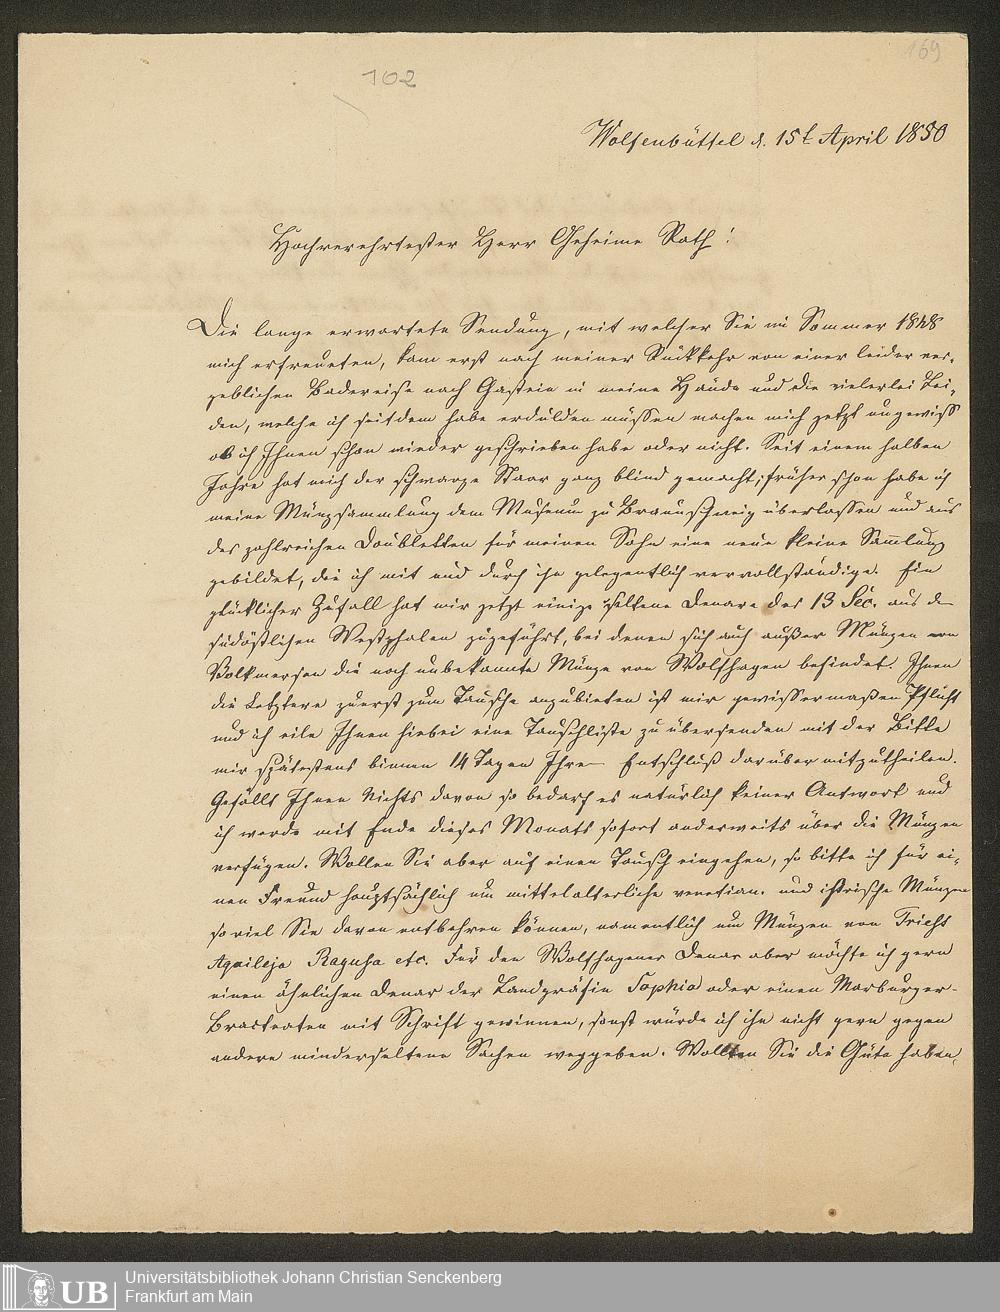 169
102
Wolfenbüttel d. 15t April 1850
Hochverehrtester Herr Geheime Rath!
Die lange erwartete Sendung, mit welcher Sie im Sommer 1848
mich erfreueten, kam erst nach meiner Rückkehr von einer leider ver-
geblichen Badereise nach Gastein in meine Hände und die vielerlei Lei-
den, welche ich seitdem habe erdulden müssen machen mich jetzt ungewiss
ob ich Ihnen schon wieder geschrieben habe oder nicht. Seit einem halben
Jahre hat mich der schwarze Staar ganz blind gemacht; früher schon habe ich
meine Münzsammlung dem Museum zu Braunschweig überlassen und aus
des zahlreichen Doubletten für meinen Sohn eine neue kleine Sammlung
gebildet, die ich mit und durch ihn gelegentlich vervollständige. Ein
glücklicher Zufall hat mir jetzt einige seltene Denare des 13 Séc. aus d
südöstlichen Westphalen zugeführt, bei denen sich auch außer Münzen von
Volkmersen die noch unbekannte Münze von Wolfhagen befindet. Ihnen
die Letztere zuerst zum Tausche anzubieten ist mir gewissermaßen Pflicht
und ich eile Ihnen hiebei eine Tauschliste zu übersenden mit der Bitte
mir spätestens binnen 14 Tagen Ihren Entschluß darüber mitzutheilen.
Gefällt Ihnen Nichts davon so bedarf es natürlich keiner Antwort und
ich werde mit Ende dieses Monats sofort anderweits über die Münzen
verfügen. Wollen Sie aber auf einen Tausch eingehen, so bitte ich für ei-
nen Freund hauptsächlich um mittelalterliche venetian. und istrische Münzen
so viel Sie davon entbehren können, namentlich um Münzen von Triest
Aquileja Ragusa etc. Für den Wolfhagener Denar aber möchte ich gern
einen ähnlichen Denar der Landgräfin Sophia oder einen Marburger-
Bracteaten mit Schrift gewinnen, sonst würde ich ihn nicht gern gegen
andere minderseltene Sachen weggeben. Wollten Sie die Güte haben,
Universitätsbibliothek Johann Christian Senckenberg
Frankfurt am Main
UB